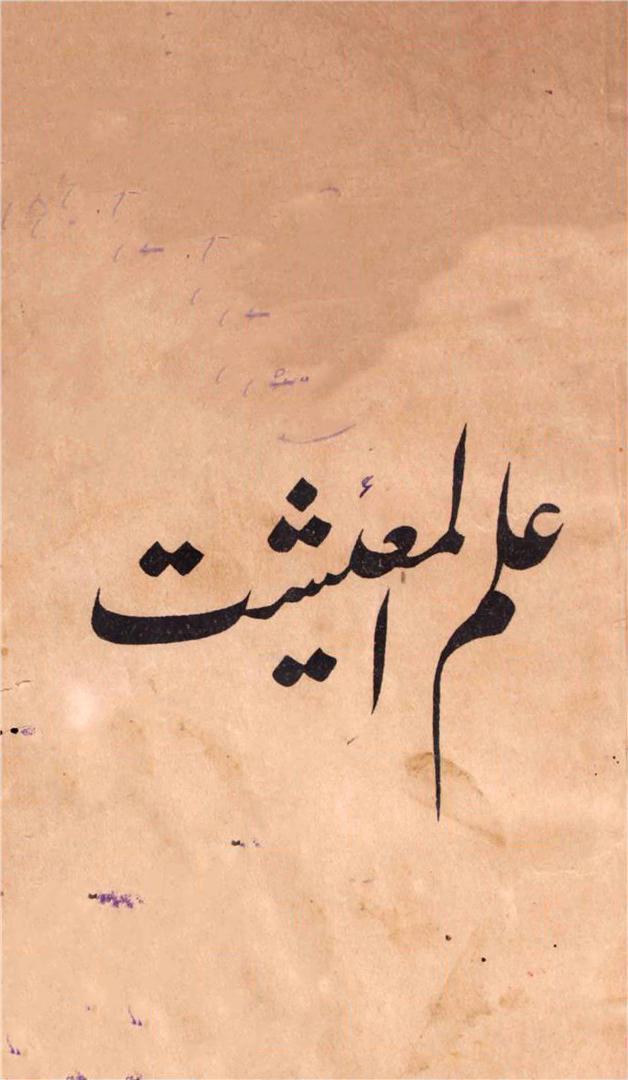 علم المعیشت